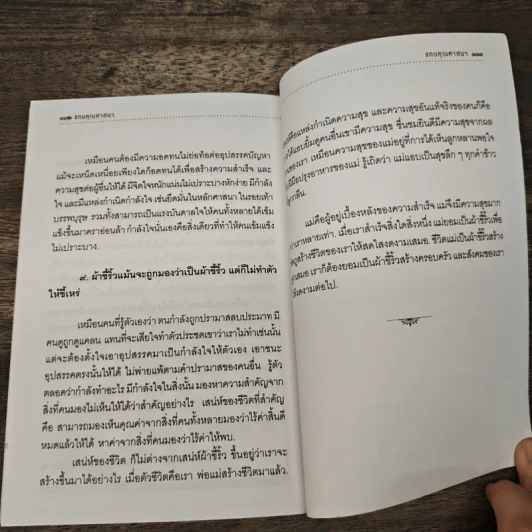 ๑๑๒ แทนคุณศาสนา
เหมือนคนต้องมีความอดทนไม่ย่อท้อต่ออุปสรรคปัญหา
แม้จะเหนื่อยเพียงใดก็อดทนได้เพื่อสร้างความสำเร็จ และ
ความสุขต่อผู้อื่นให้ได้ มีจิตใจหนักแน่นไม่เปราะบางหักง่าย มีกำลัง
ใจ และมีแหล่งกำเนิดกำลังใจ เช่นยึดมั่นในหลักศาสนา ในรอยเท้า
บรรพบุรุษ รวมทั้งสามารถเป็นแรงบันดาลใจให้คนทั้งหลายได้เข้ม
แข็งขึ้นมาคราอ่อนล้า กำลังใจนั่นเองคือสิ่งเดียวที่ทำให้คนเข้มแข็ง
ไม่เปราะบาง.
๙. ผ้าขี้ริ้วแม้นจะถูกมองว่าเป็นผ้าขี้ริ้ว แต่ก็ไม่ทำตัว
ให้ขี้เหร่
เหมือนคนที่รู้ตัวเองว่า ตนกำลังถูกปรามาสสบประมาท มี
คนดูถูกดูแคลน แทนที่จะเสียใจทำตัวประชดเขาว่าเราไม่ทำเช่นนั้น
แต่จะต้องตั้งใจเอาอุปสรรคมาเป็นกำลังใจให้ตัวเอง เอาชนะ
อุปสรรคตรงนั้นให้ได้ ไม่พ่ายแพ้ตามคำปรามาสของคนอื่น รู้ตัว
ตลอดว่ากำลังทำอะไร มีกำลังใจในสิ่งนั้น มองหาความสำคัญจาก
สิ่งที่คนมองไม่เห็นให้ได้ว่าสำคัญอย่างไร เสน่ห์ของชีวิตที่สำคัญ
คือ สามารถมองเห็นคุณค่าจากสิ่งที่คนทั้งหลายมองว่าไร้ค่าสิ้นดี
หมดแล้วให้ได้ หาค่าจากสิ่งที่คนมองว่าไร้ค่าให้พบ.
เสน่ห์ของชีวิต ก็ไม่ต่างจากเสน่ห์ผ้าขี้ริ้ว ขึ้นอยู่ว่าเราจะ
สร้างขึ้นมาได้อย่างไร เมื่อตัวชีวิตคือเรา พ่อแม่สร้างชีวิตมาแล้ว.
แทนคุณศาสนา
แหล่งกำเนิดความสุข และความสุขอันแท้จริงของคนก็คือ
ได้แอบยิ้มดูคนอื่นเขามีความสุข ชื่นชมยินดีมีความสุขจากผล
ของเรา เหมือนความสุขของแม่อยู่ที่การได้เห็นลูกหลานพอใจ
ฝีมือปรุงอาหารของแม่ รู้เถิดว่า แม่แอบเป็นสุขลึก ๆ ทุกคำข้าว
ลูกกลืน.
แม่คือผู้อยู่เบื้องหลังของความสำเร็จ แม่จึงมีความสุขมาก
กว่าเราหลายเท่า. เมื่อเราสำเร็จสิ่งใดสิ่งหนึ่ง แม่ยอมเป็นผ้าขี้ริ้วเพื่อ
สร้างชีวิตของเราให้สดใสงดงามเสมอ. ชีวิตแม่เป็นผ้าขี้ริ้วสร้าง
เสมอ เราก็ต้องยอมเป็นผ้าขี้ริ้วสร้างครอบครัว และสังคมของเรา
งดงามต่อไป.